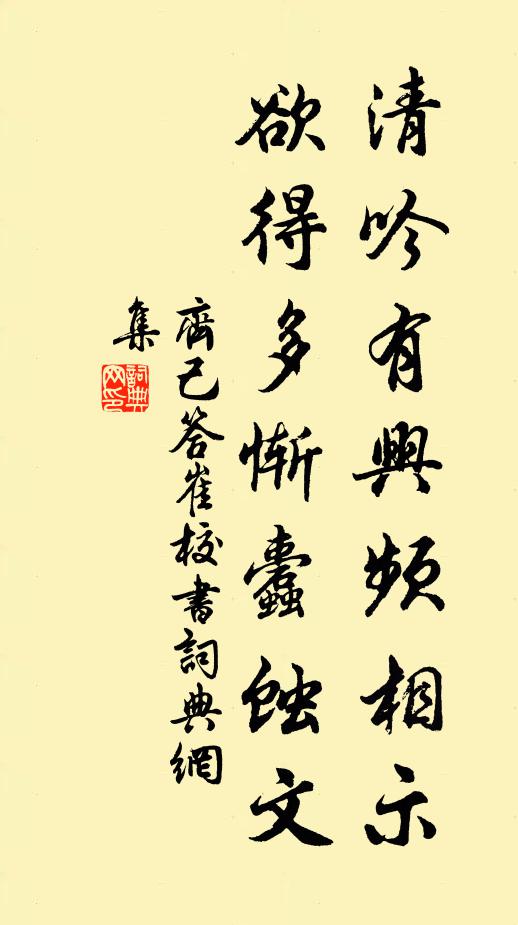 清吟有興頻相示
欲得多慚蠹蝕文
齊己答崔校書詞典網
集
詞典
网印